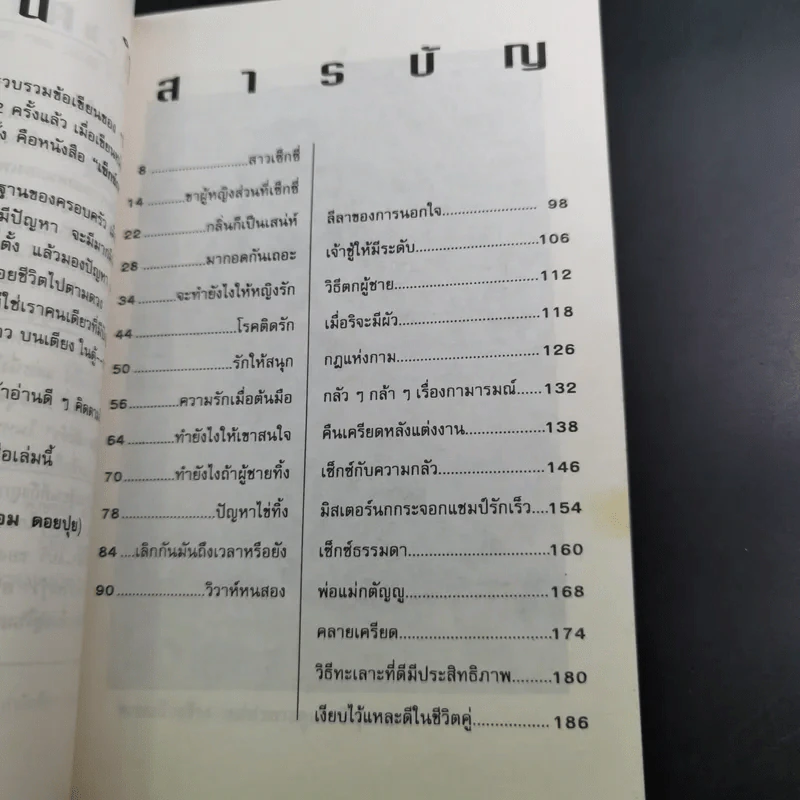 วบรวมข้อเขียนของ
2 ครั้งแล้ว
คือหนังสือ
ฐานของครอบครัว
มีปัญหา จะมีมา
ตั้ง แล้วมองปัญหา
อยชีวิตไปตามดวง
ใช่เราคนเดียวที่
บนเตียง ในตู้
อ่านดี ๆ
อเล่มนี้
อม ดอยปุย)
สารบัญ
8 สาวเซ็กซี่
14 ขาผู้หญิงส่วนที่เซ็กซี่
22 กลิ่นก็เป็นเสน่ห์
28 มากอดกันเถอะ
34 จะทำยังไงให้หญิงรัก
44 โรคติดรัก
50 รักให้สนุก
56 ความรักเมื่อต้นมือ
64 ทำยังไงให้เขาสนใจ
70 ทำยังไงถ้าผู้ชายทิ้ง
78 ปัญหาไข่ทิ้ง
84 เลิกกันมันถึงเวลาหรือยัง
90 วิวาห์หนสอง
ลีลาของการนอกใจ 98
เจ้าชู้ให้มีระดับ 106
วิธีตกผู้ชาย 112
เมื่อริจะมีผัว 118
กฎแห่งกาม 126
กลัว ๆ กล้า ๆ เรื่องกามารมณ์ 132
คืนเครียดหลังแต่งงาน 138
เซ็กซ์กับความกลัว 146
มิสเตอร์นกกระจอกแชมป์รักเร็ว 154
เซ็กซ์ธรรมดา 160
พ่อแม่กตัญญู 168
คลายเครียด 174
วิธีทะเลาะที่ดีมีประสิทธิภาพ 180
เงียบไว้แหละดีในชีวิตคู่ 186